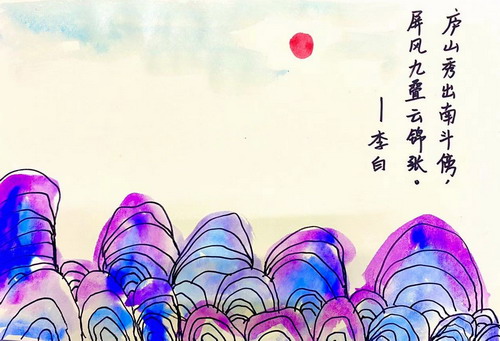 庐山秀出南斗傍，
屏风九叠云锦张。
—李白